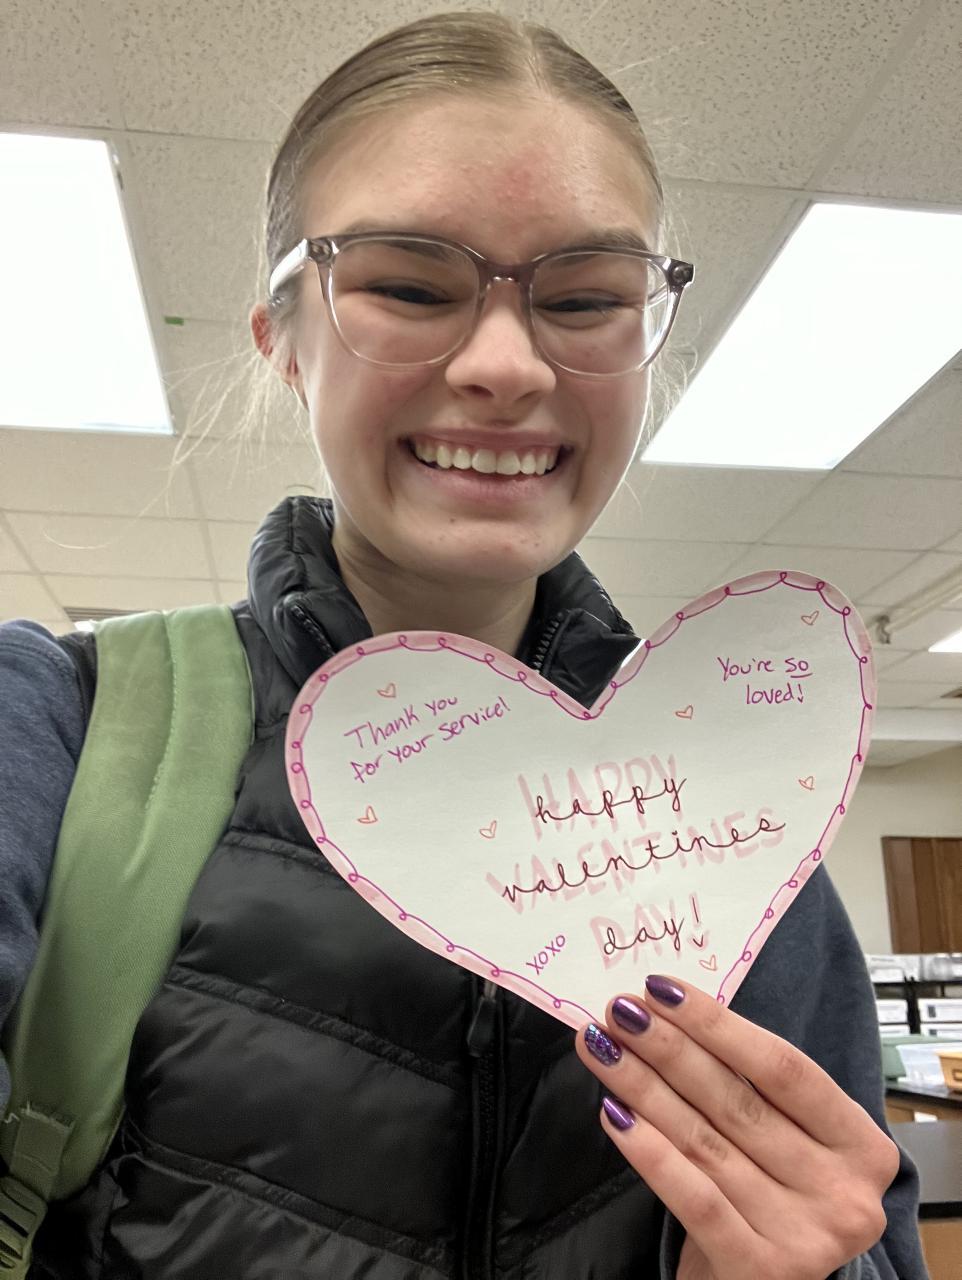 Thank you
for your service!
You're so
loved!
HAPPY
happy
VALENTINES
valentines
DAY!
day!
XOXO